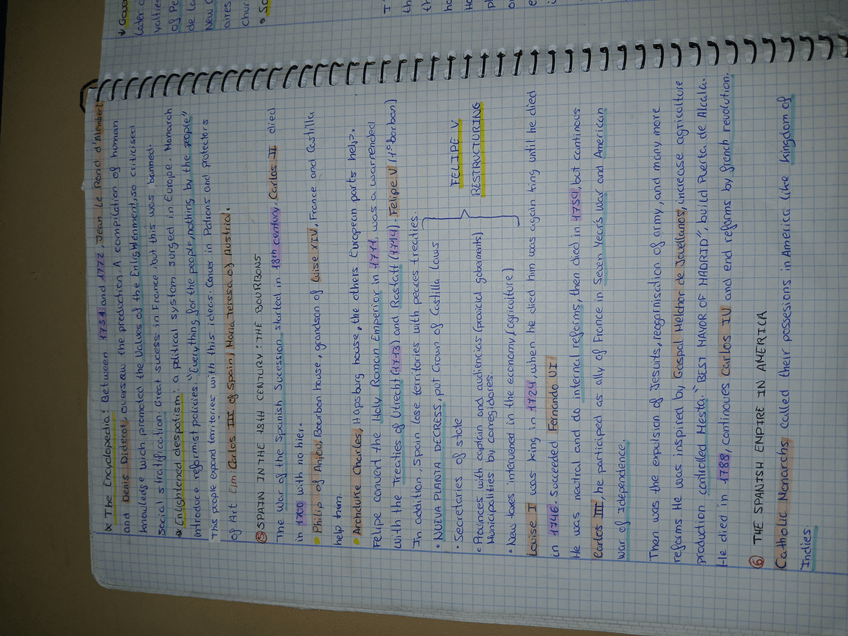 * The Encyclopedia: Between 1751 and 1772, Jean Le Rond d'Alembert
and Denis Diderot, oversaw the production. A compilation of human
knowledge wich promoted the values of the Enlightenment, so criticised
social stratification. Great sucess in France but this was banned.
* Enlightened despotism: a political system surged in Europe. Monarch
introduce reformist policies "Everything for the people, nothing by the people"
This people expand territories with this ideas. Conver in Patrons and Protectors
of Art. Carlos III of Spain, Maria Teresa of Austria.
⑤ SPAIN IN THE 18TH CENTURY: THE BOURBONS
The War of the Spanish Sucession started in 18th century. Carlos II died
in 1700 with no hier.
• Philip of Anjou, Bourbon house, grandson of Luise XIV, France and Castilla
help him.
• Archduke Charles, Hapsburg house, the others European parts help.
Felipe convert the Holy Roman Emperor in 1711, was a warrended
with the Treaties of Utrecht (1713) and Rastatt (1714). Felipe V (1º borbon)
In addition, Spain lose territories with peaces treaties
• NUEVA PLANTA DECRESS, put Crown of Castilla laws.
• Secretaries of state
• Provinces with captain and audiencies
Municipalities by corregidores.
• New taxes intervened in the economy (agriculture)
FELIPE V
RESTRUCTURING
Louise I was king in 1724, when he died him was again king until he died
in 1746. Succeded Fernando VI.
He was neutral and do internal reforms, then died in 1759, but continous
Carlos III, he participated as ally of France in Seven Years War and American
War of Independence.
Then was the expulsion of Jesuits, reorganisation of army, and many more
reforms. He was inspired by Gaspal Melchor de Jovellanos, increase agriculture
production controlled Mesta. "BEST MAYOR OF MADRID", build Puerta de Alcala.
He died in 1788, continoues Carlos IV and end reforms by french revolution.
⑥ THE SPANISH EMPIRE IN AMERICA
Catholic Monarchs called their possesions in America like kingdom of
Indies